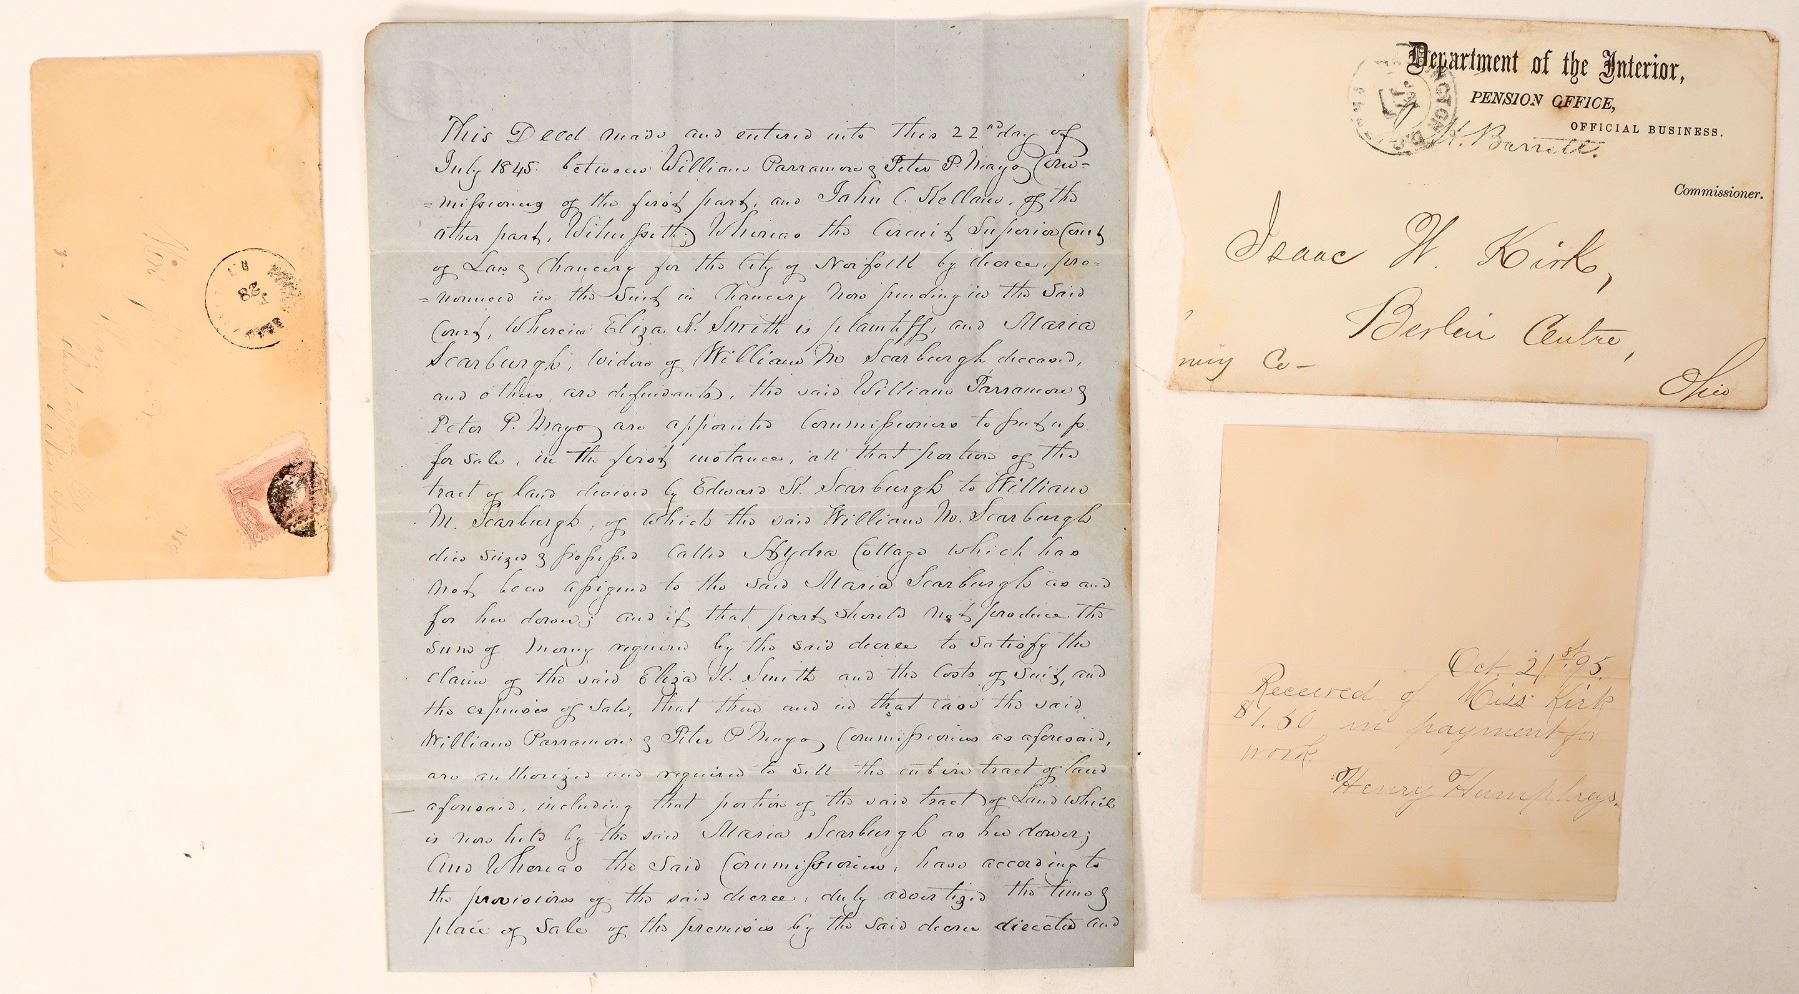 This Deed made and entered into this 22nd day of
July 1845. between William Parramore & Peter P. Mayo Com-
=missioners of the first part, and John C. Kellam, of the
other part, Witnesseth; Whereas the Circuit Superior Court
of Law & Chancery for the City of Norfolk by decree, pro=
=nounced in the Suit in Chancery now pending in the said
Court, Wherein Eliza K. Smith is plaintiff, and Maria
Scarburgh, widow of William M Scarburgh deceased,
and others are defendants, the said William Parramore &
Peter P. Mayo are appointed Commissioners to put up
for sale, in the first instance, all that portion of the
tract of land devised by Edward K. Scarburgh to William
M. Scarburgh, of which the said William M. Scarburgh
died seized & possessed called Hydra Cottage which has
not been assigned to the said Maria Scarburgh as and
for her dower; and if that part should not produce the
sum of money required by the said decree to satisfy the
claim of the said Eliza K. Smith and the costs of suit, and
the expenses of sale, that then and in that case the said
William Parramore & Peter P Mayo Commissioners as aforesaid,
are authorized and required to sell the entire tract of land
aforesaid, including that portion of the said tract of Land which
is now held by the said Maria Scarburgh as her dower;
And Whereas the said Commissioners, have according to
the provisions of the said decree, duly advertized the time &
place of sale of the premises by the said decree directed and
Department of the Interior,
PENSION OFFICE,
OFFICIAL BUSINESS.
Barrett.
Commissioner.
Isaac W. Kirk,
Berlin Centre,
Co-
Ohio
Oct. 21st 95.
Received of Miss Kirk
$1.50 in payment for
work
Henry Humphreys.
28